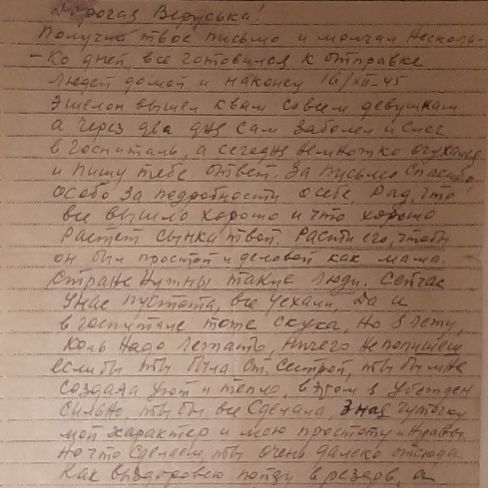 Дорогая Веруська!
Получив твое письмо и молчал несколь-
-ко дней, все готовился к отправке
людей домой и наконец 16/XII-45
эшелон вышел к вам совсем девушкам
а через два дня сам заболел и слег
в госпиталь, а сегодня немножко очухался
и пишу тебе ответ. За письмо спасибо,
особо за подробности о себе. Рад, что
все вышло хорошо и что хорошо
растет сынка твой. Расти его, чтобы
он был простой и деловой как мама.
Стране нужны такие люди. Сейчас
у нас пустота, все уехали, да и
в госпитале тоже скука, но я лежу,
коль надо лежать, ничего не попишешь
если бы ты была ст. сестрой, ты бы мне
создала уют и тепло, в этом я убежден
сильно, ты бы все сделала, зная чуточку
мой характер и мою простоту и нравы
Но что сделаешь, ты очень далеко отсюда.
Как выздоровею пойду в резерв, а